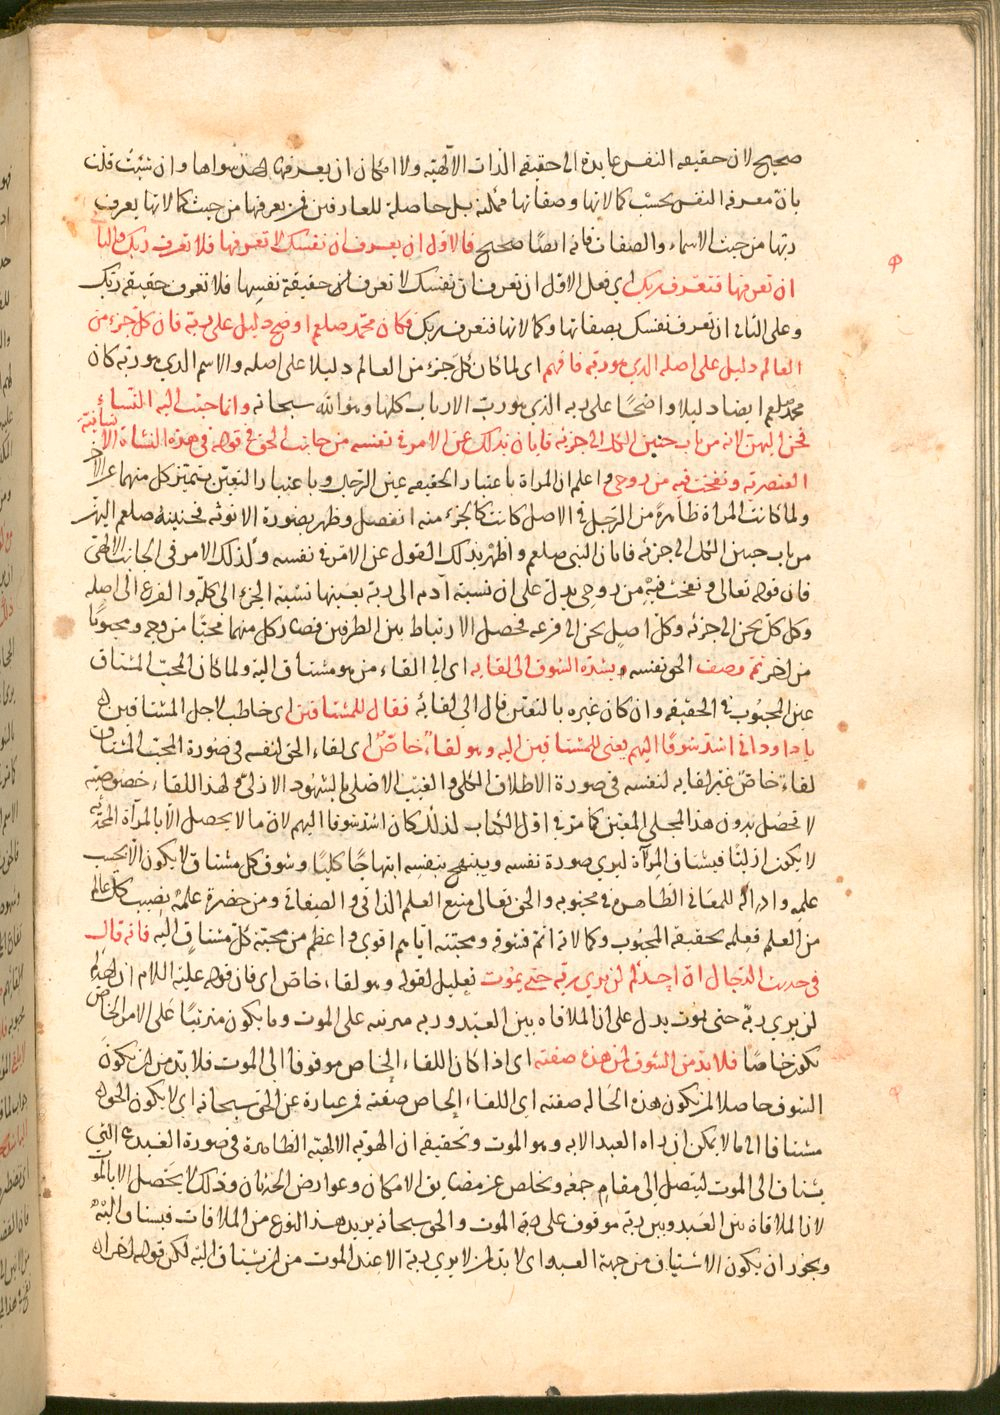 صحيح لان حقيقه النفس عايدة الى حقيقه الذات الالهية ولا امكان ان يعرفها احد سواها وان شئت قلت
بان معرفة النفس بحسب كمالاتها وصفاتها ممكنة بل حاصلة للعارفين فمن يعرفها من حيث كمالاتها يعرف
ربها من حيث الاسماء والصفات فانه ايضا صحيح فالاول ان يعرف ان نفسك لا تعرفها فلا تعرف ربك والثاني
ان تعرفها فتعرف ربك اى فعلى الاول ان تعرف ان نفسك لا تعرف اى حقيقة نفسها فلا تعرف حقيقة ربك
وعلى الثانى ان تعرف نفسك بصفاتها وكمالاتها فتعرف ربك فكان محمد صلعم اوضح دليل على ربه فان كل جزء من
العالم دليل على اصله الذي هو ربه فافهم اى لما كان كل جزء من العالم دليلا على اصله والاسم الذي هو ربه كان
محمد صلعم ايضا دليلا واضحا على ربه الذي هو رب الارباب كلها وهو الله سبحانه وانما حبب اليه النساء
فحن اليهن لانه من باب حنين الكل الى جزئه فابان بذلك عن الامر في نفسه من جانب الحق فى قوله فى هذه النشأة الانسانية
العنصرية ونفخت فيه من روحى واعلم ان المراة باعتبار الحقيقه عين الرجل وباعتبار التعين يتميز كل منهما عن الآخر
ولما كانت المراة ظاهرة من الرجل في الاصل كانت كالجزء منه انفصل وظهر بصورة الانوثه فحنينه صلعم اليهن
من باب حنين الكل الى جزئه فابان النبى صلعم واظهر بذلك القول عن الامر في نفسه وكذلك الامر فى الجانب الالهى
فان قوله تعالى ونفخت فيه من روحى يدل على ان نسبة آدم الى ربه بعينها نسبة الجزء الى كله والفرع الى اصله
وكل كل يحن الى جزئه وكل اصل يحن الى فرعه فحصل الارتباط بين الطرفين فصار كل منهما محبا من وجه ومحبوبا
من اخر ثم وصف الحق نفسه بشدة الشوق الى لقايه اى الى القاء من هو مشتاق اليه ولما كان المحب المشتاق
عين المحبوب في الحقيقه وان كان غيره بالتعين قال الى لقايه فقال للمشتاقين اى خاطب لاجل المشتاقين له
يا داود انى اشد شوقا اليهم يعنى للمشتاقين اليه وهو لقاء خاص اى لقاء الحق لنفسه فى صورة المحب المشتاق
لقاء خاص غير لقايه لنفسه فى صورة الاطلاق الكلى والغيب الاصلى بالشهود الازلى ولهذا اللقاء خصوصية
لا تحصل بدون هذا المجلى المعين كما مر في اول الكتاب لذلك كان اشد شوقا اليهم لان ما لا يحصل الا بالمرآة المحدثه
لا يكون ازليا فيشتاق المرآة ليرى صورة نفسه ويبتهج بنفسه ابتهاجا كليا وشوق كل مشتاق لا يكون الا بحسب
علمه وادراكه للمعانى الظاهرة في محبوبه والحق تعالى منبع العلم الذاتى والصفاتى ومن حضرة علمه نصيب كل عالم
من العلم فعلمه بحقيقه المحبوب وكمالاته اتم فشوقه ومحبته اياهم اقوى واعظم من محبة كل مشتاق اليه فانه قال
فى حديث الدجال ان احدكم لن يرى ربه حتى يموت تعليل لقوله وهو لقاء خاص اى فان قوله عليه السلام ان احدكم
لن يرى ربه حتى يموت يدل على ان الملاقاة بين العبد وربه مرتبه على الموت وما يكون مترتبا على الامر الخاص
يكون خاصا فلا بد من الشوق لمن هذه صفته اى اذا كان اللقاء الخاص موقوفا الى الموت فلا بد من ان يكون
الشوق حاصلا لمن يكون هذه الحالة صفته اى اللقاء الخاص صفته فمن عبارة عن الحق سبحانه اى لا يكون الحق
مشتاقا الى ما لا يمكن ان يراه العبد الا به وهو الموت وتحقيقه ان الهوية الالهية الظاهرة في صورة العبد هى التى
يشتاق الى الموت ليتصل الى مقام جمعه ويخلص عن مضايق الامكان وعوارض الحدثان وذلك لا يحصل الا بالموت
لان الملاقاة بين العبد وبين ربه موقوف على الموت والحق سبحانه يريد هذا النوع من الملاقات فيشتاق اليه
ويجوز ان يكون الاشتياق من جهة العبد اى لا بد لمن لا يرى ربه الا عند الموت من ان يشتاق اليه لكن قوله اخرا